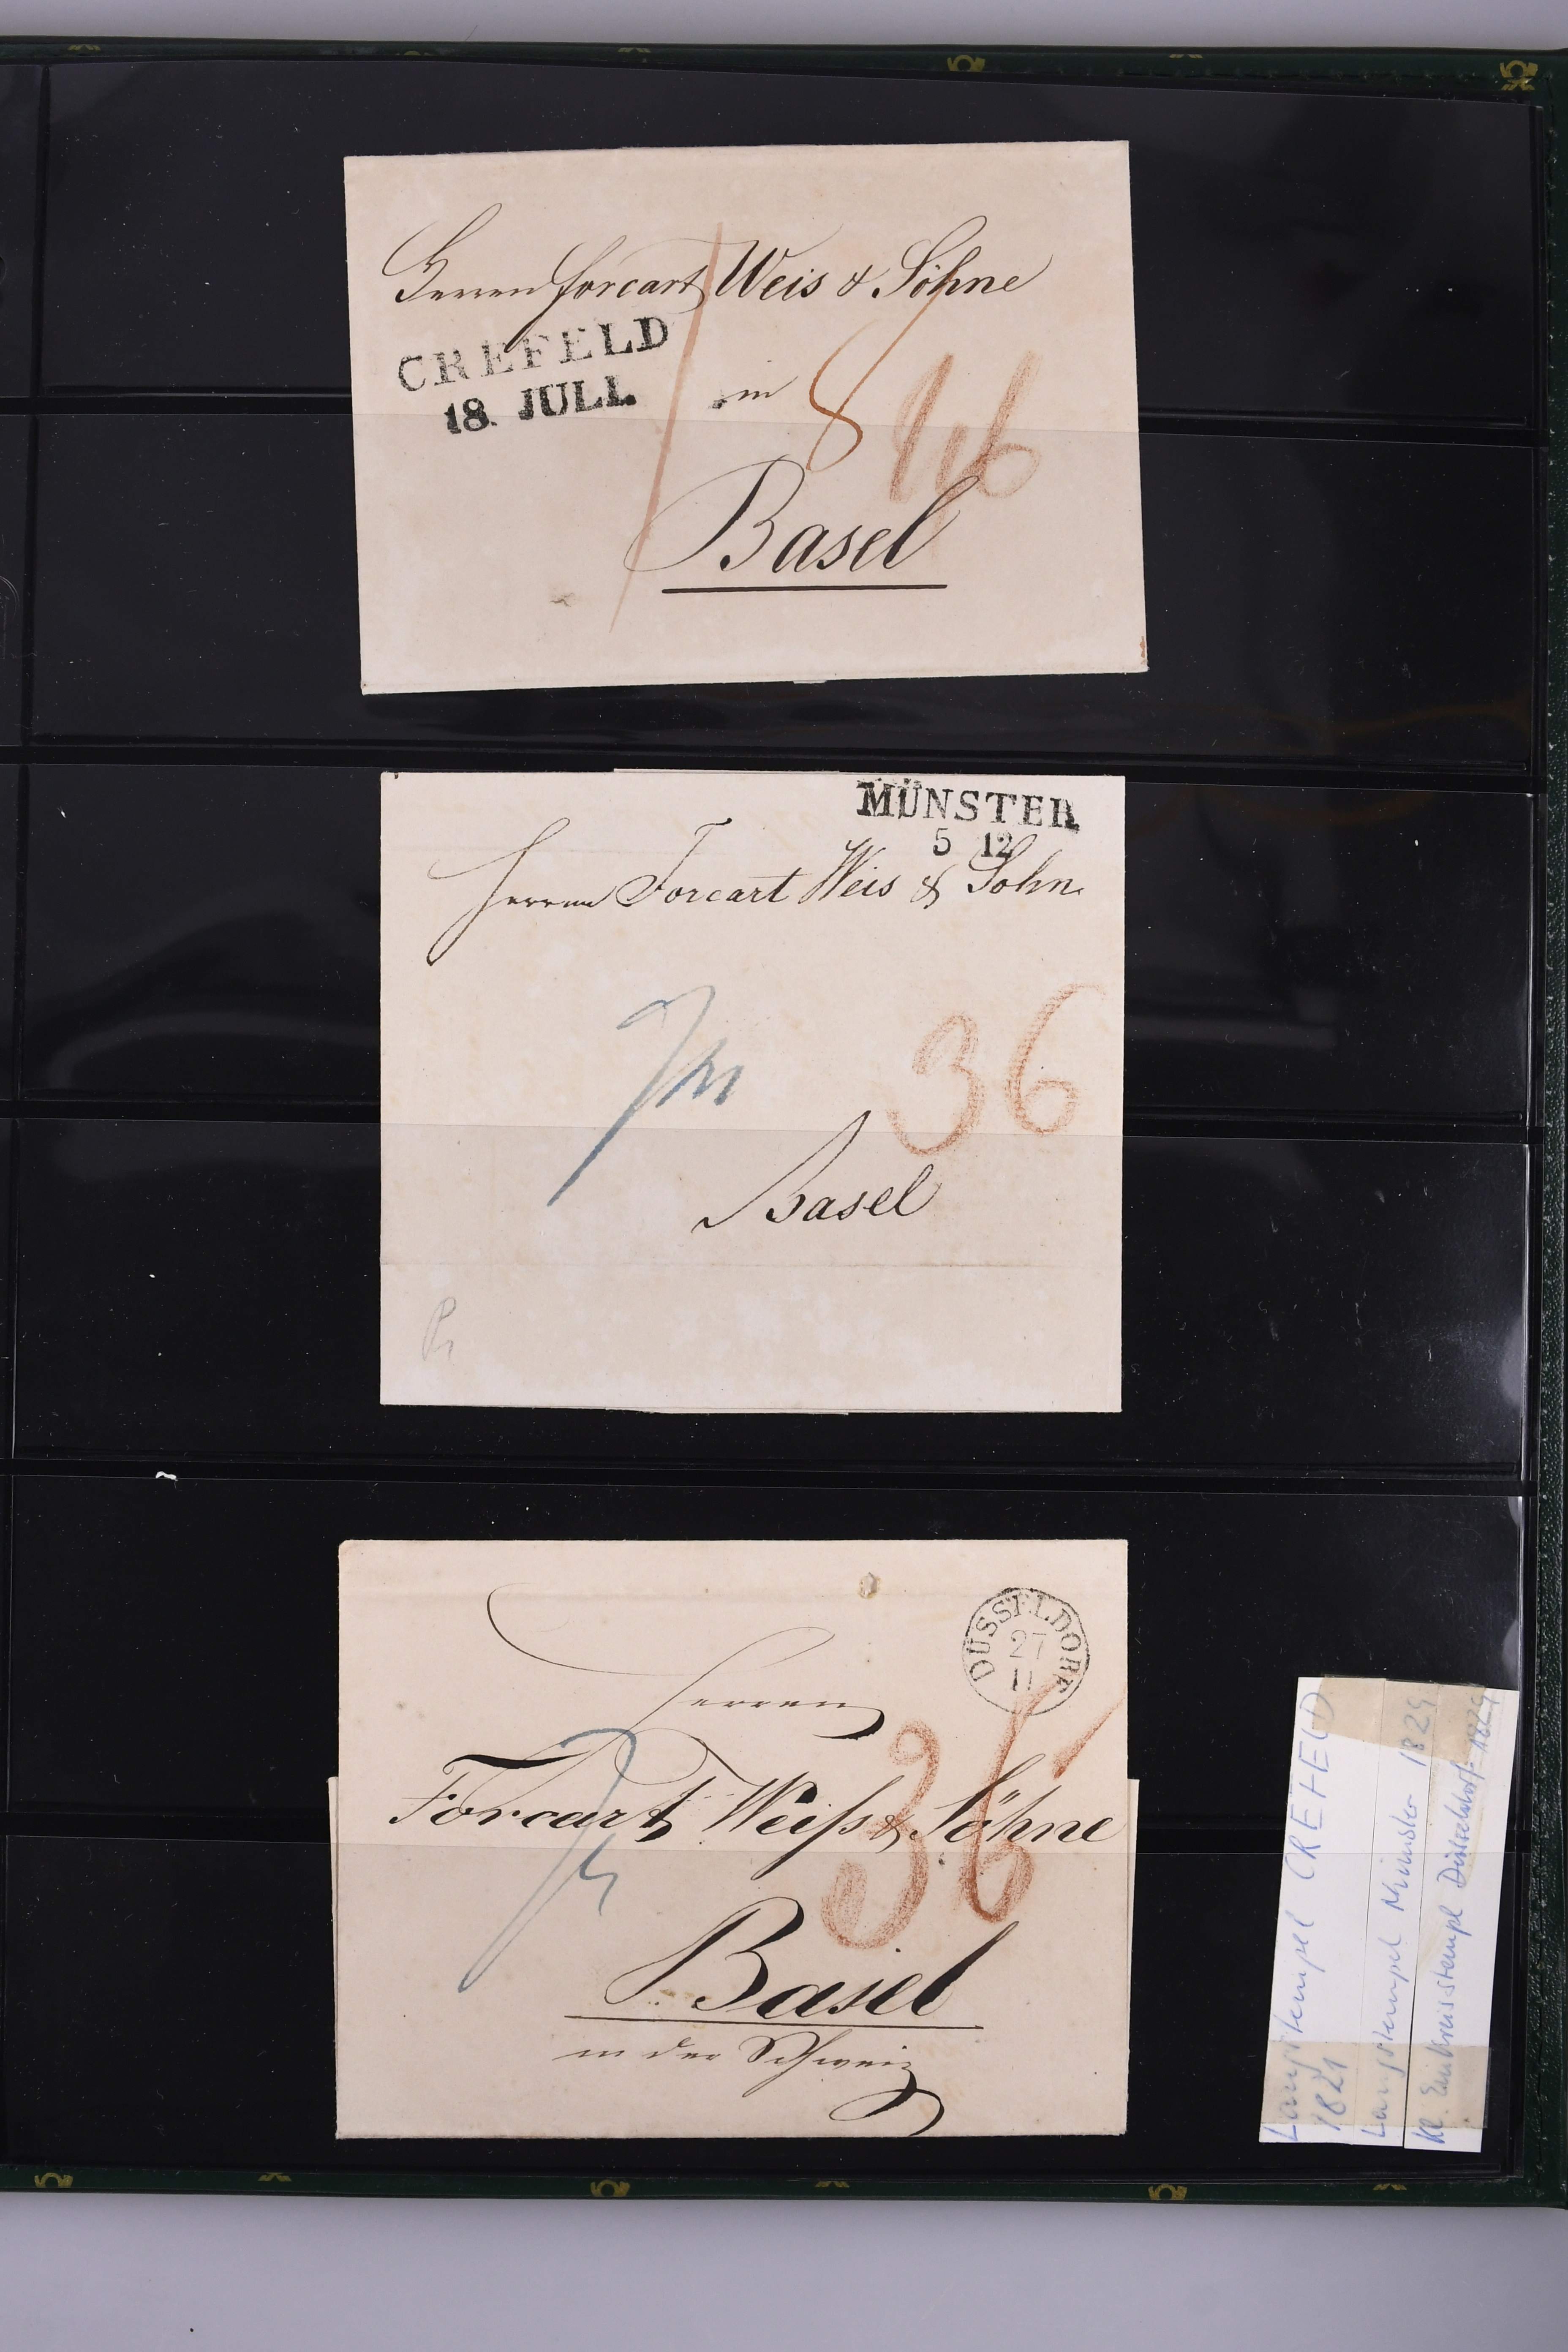 Herren Forcart Weis & Söhne
CREFELD
18. JULI.
in
8
Basel
MÜNSTER
5 12
Herren Forcart Weis & Sohn
36
Basel
DÜSSELDORF
27
11
Herren
36
Forcart Weiſs & Söhne
Basel
in der Schweiz
Langstempel CREFELD
1821
Langstempel Münster 1829
kl. Einkreisstempel Düsseldorf 1829